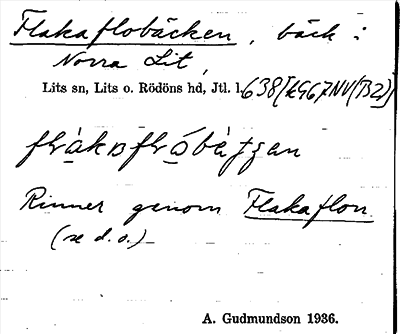 Flakaflobäcken, bäck i
Norra Lit,
Lits sn, Lits o. Rödöns hd, Jtl. l.
Rinner genom Flakaflon
(se d.o.)
A. Gudmundson 1936.